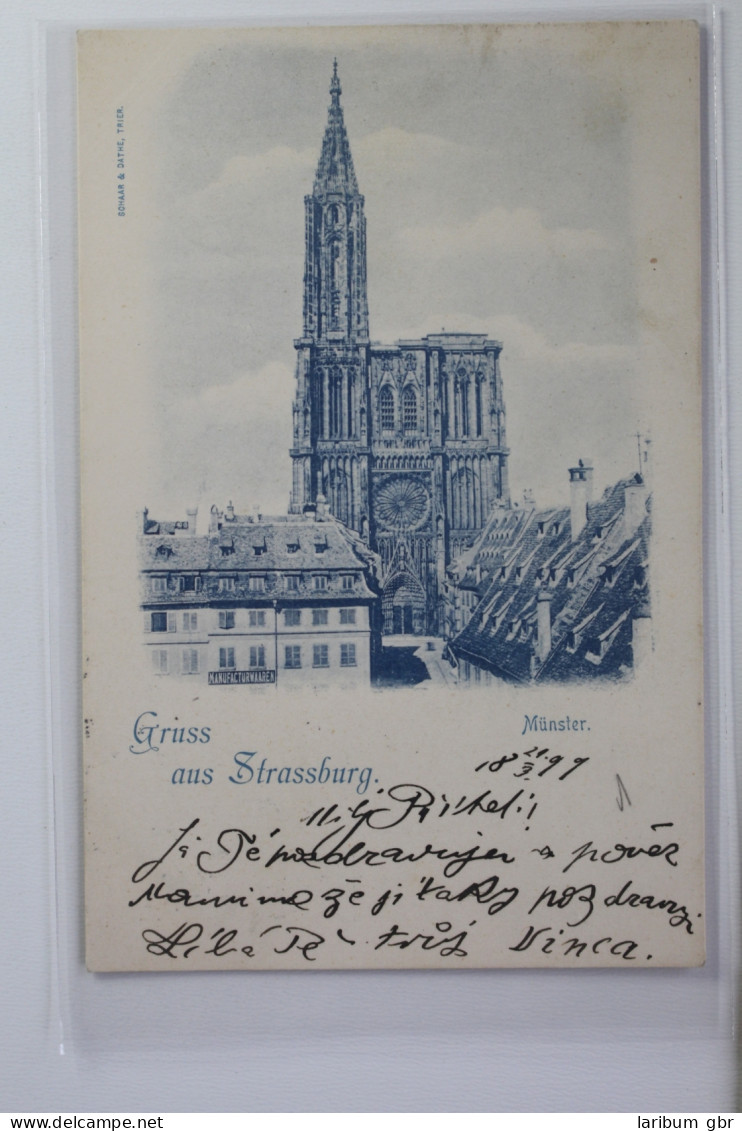 SCHAAR & DATHE, TRIER.
MANUFACTURWAAREN
Gruss
aus Strassburg.
Münster.
18 21/9. 99
Milý Příteli!
Já Tě pozdravuju a pověz
Mamině že ji taky pozdravuji
Líbá Tě tvůj Vinca.
laribum gbr